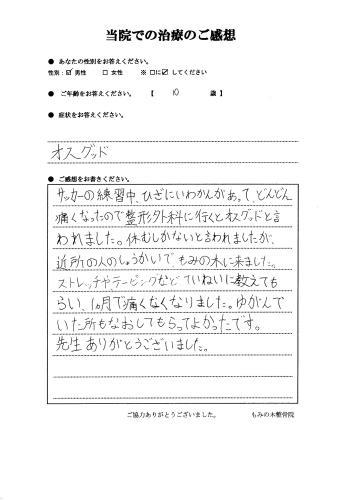 当院での治療のご感想
● あなたの性別をお答えください。
性別：☑ 男性　□ 女性　※ □に☑ してください
● ご年齢をお答えください。　【　10　歳】
● 症状をお答えください。
オスグッド
● ご感想をお書きください。
サッカーの練習中、ひざにいわかんがあって、どんどん
痛くなったので整形外科に行くとオスグッドと言
われました。休むしかないと言われましたが、
近所の人のしょうかいで もみの木に来ました。
ストレッチやテーピングなど ていねいに教えても
らい、1ヵ月で痛くなくなりました。ゆがんで
いた所もなおしてもらってよかったです。
先生ありがとうございました。
ご協力ありがとうございました。　もみの木整骨院